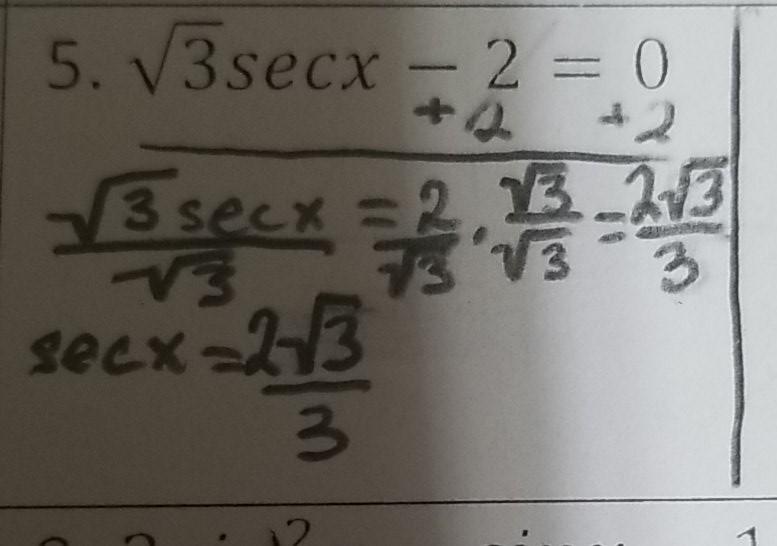 5. √3secx − 2 = 0
+2 +2
√3 secx/√3 = 2/√3 · √3/√3 = 2√3/3
secx = 2√3/3